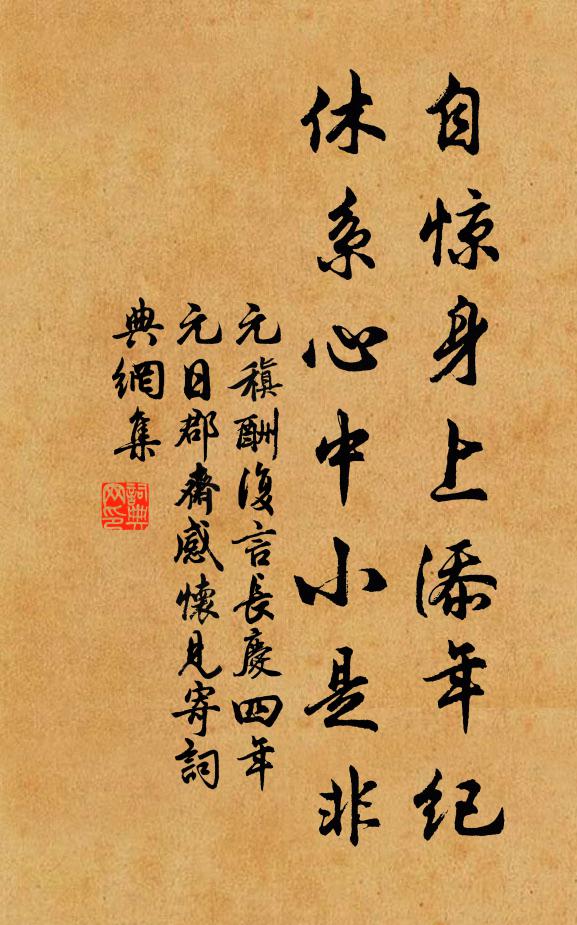 自惊身上添年纪
休系心中小是非
元稹酬復言長慶四年
元日郡齋感懷見寄詞
典網集
詞典網印